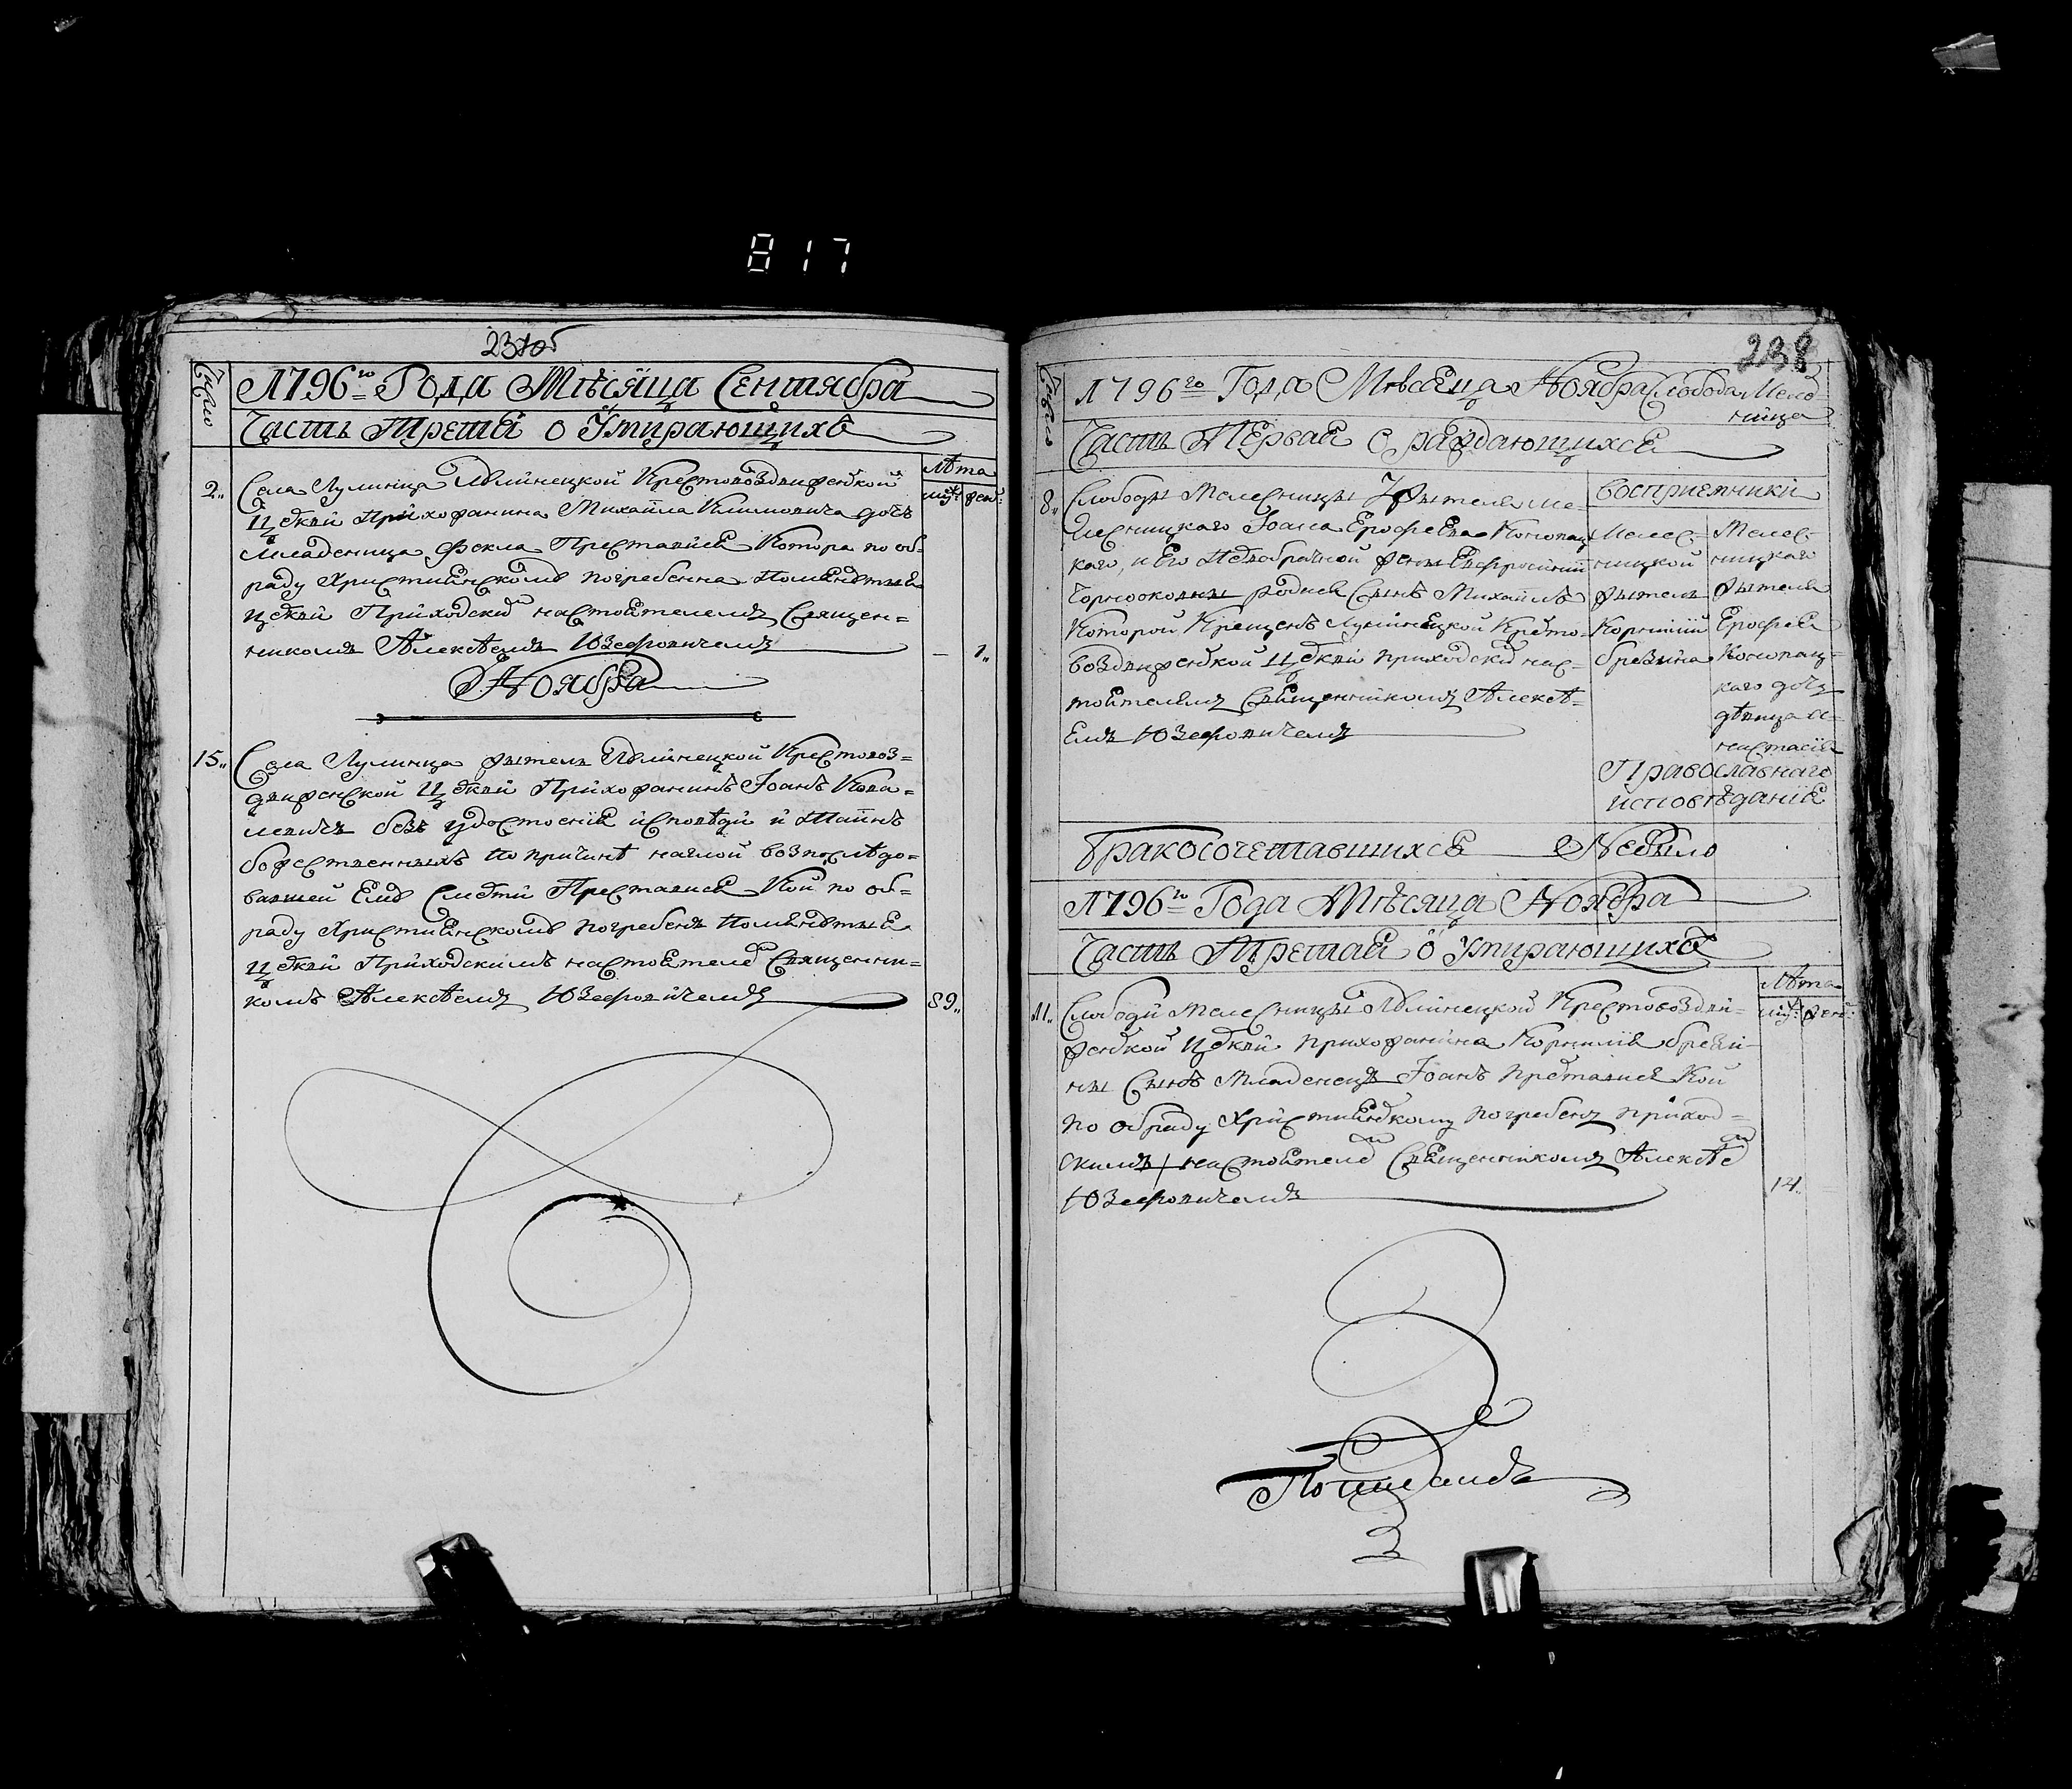 817
237об
Число
1796го Года Мѣсяца Сентября
Часть Третія о Умирающихъ
Лѣта
муж: жен:
2. Села Лулинца Лулинецкой Крестовоздвиженской
Церкви Прихожанина Михайла Климовича дочь
Младеница Фекла Преставися Котора по об-
ряду Християнскому погребенна Помянутыя
церкви Приходским настоятелемъ Священ=
никомъ Алексѣемъ Юзефовичемъ — 1.
Ноября
15. Села Лулинца житель Лулинецкой Крестовоз=
движенской Церкви Прихожанинъ Іоанъ Кова=
левичъ безъ удостоенія исповѣди и Таинъ
божественныхъ по причинѣ наглой возпослѣдо=
вавшей Ему Смерти Преставися Кой по об=
ряду Християнскому погребенъ Помянутыя
Церкви Приходскимъ настоятелем Священни=
комъ Алексѣемъ Юзефовичемъ 89.
238
Число
1796го Года Мѣсяца Ноября Слобода Меле-
ница
Часть Первая о раждающихся
8. Слободы Мелесницы Жителя Ме-
лесницкаго Іоана Ерофеева Конопац
каго, и Его Первобрачной жены Евфросиніи
родися Сынъ Михаилъ
Которой Крещенъ Лулинецкой Кресто-
воздвиженской Церкви приходским нас-
тоятелемъ Священникомъ Алексѣ-
емъ Юзефовичемъ
Восприемники
Мелес-
ницкой
житель
Корнилій
брезина
Мелес-
ницкаго
жителя
Ерофея
Конопац-
каго дочь
дѣвица А-
настасія
Православнаго
исповѣданія
Бракосочетавшихся Небыло
1796го Года Мѣсяца Ноября
Часть Третая о Умирающихъ
Лѣта
муж: жен:
11. Слободи Мелесницы Лулинецкой Крестовоздви-
женской Церкви прихожанина Корнилія брези-
ны Сынъ Младенецъ Іоанъ преставися Кой
по обряду Християнскому погребенъ приход=
скимъ настоятелем Священникомъ Алексѣем
Юзефовичемъ 14.